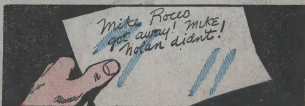 Mike Roces
got away! Mike
Nolan didnt!